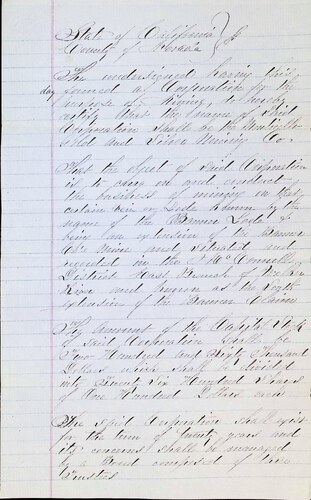 State of California }
County of Nevada } ss
The undersigned having this
day formed a Corporation for the
purpose of Mining, do hereby
certify that the name of said
Corporation shall be the
Gold and Silver Mining Co.
That the object of said Corporation
is to carry on and conduct
the business of mining in that
certain vein or Lode known by the
name of the Banner Lode &
being an extension of the Banner
Co's Mine and situated and
recorded in the
District East Branch of
River and known as the North
extension of the Banner Claim
The amount of the Capital Stock
of said Corporation shall be
Two Hundred and Sixty Thousand
Dollars which shall be divided
into Twenty Six Hundred Shares
of One Hundred Dollars each
The said Corporation shall exist
for the term of twenty years and
its concerns shall be managed
by a Board composed of
Trustees